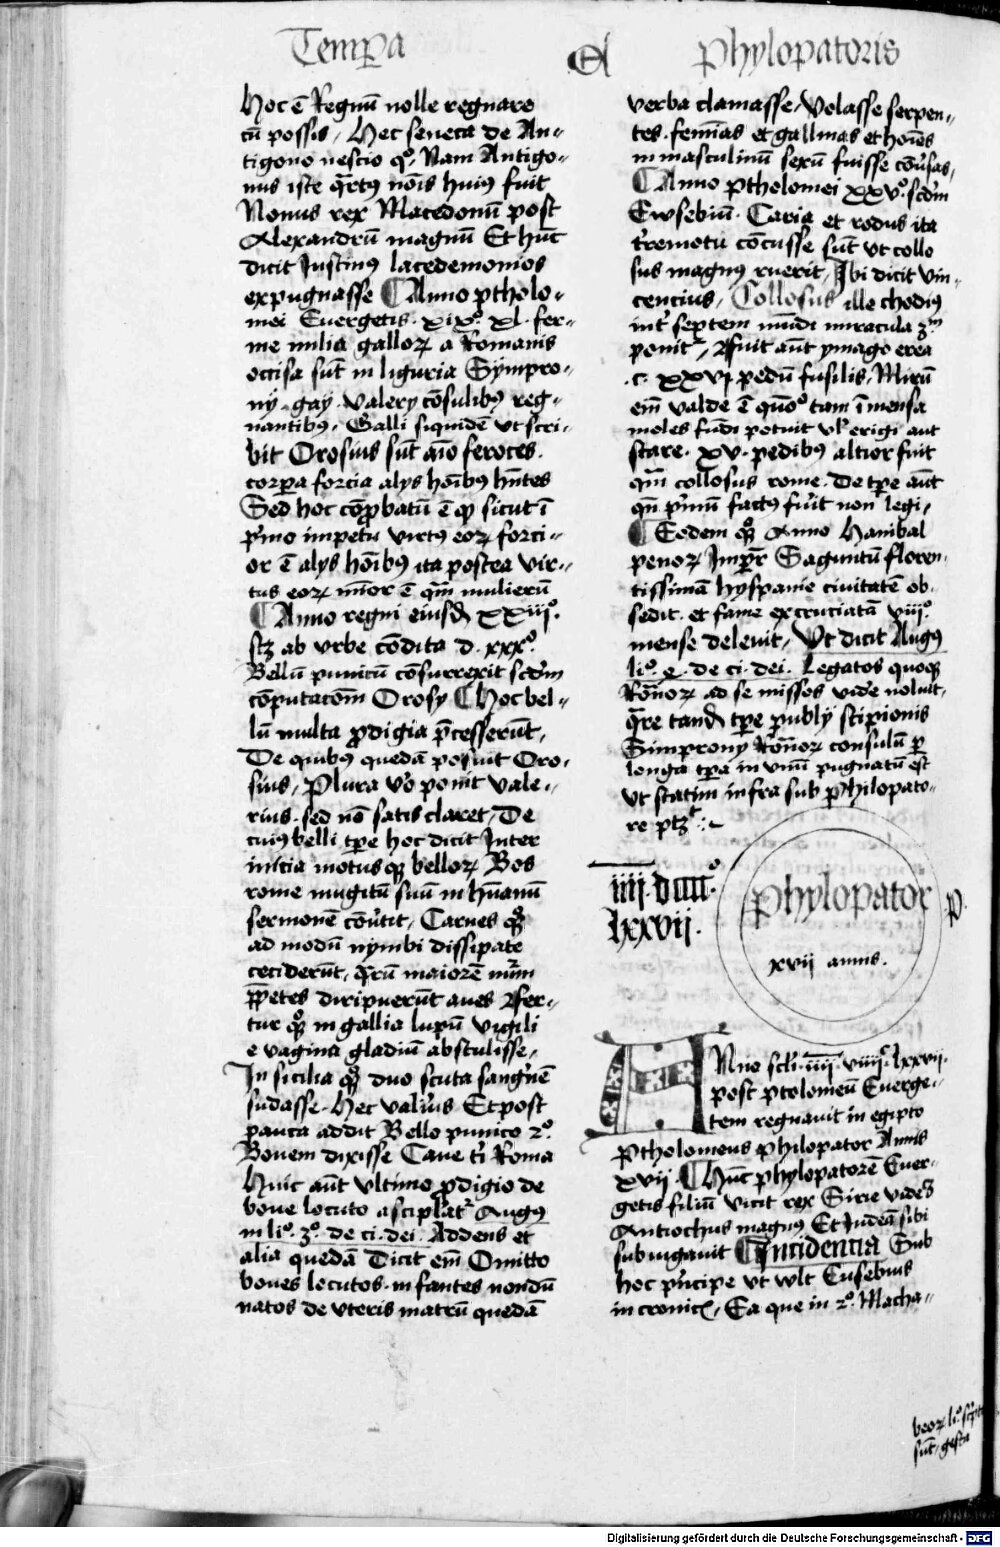 Tempa
Et
Phylopatoris
Hoc ē Regnū nolle regnare
cū possis, Hec seneca de An-
tigono nescio qº, Nam Antigo-
nus iste q̄rtꝰ nōis huiꝰ fuit
Nonus rex Macedonū post
Alexandrū magnū Et hūc
dicit Justinꝰ lacedemonios
expugnasse ¶ Anno ptholo-
mei Euergetis. xixº. xl. fer-
me milia galloꝝ a Romanis
occisa sūt in liguria Sympro-
nij. gaÿ. valerÿ cōsulibꝰ reg-
nantibꝰ. Galli siquidē vt scri-
bit Orosius sūt aīo feroces.
corpa forcia alijs hoībꝰ hn̄tes
Sed hoc cōprobatū ē qꝫ sicut ī
pͥmo impetu virtꝰ eoꝝ forci-
or ē alijs hoībꝰ ita postea vir-
tus eoꝝ mīor ē qm̄ mulierū
¶ Anno regni eiusd̄ xxiijº.
scꝫ ab vrbe cōdita d. xxxº.
Bellū punicū cōsurrexit scd̄m
cōputacōm Orosÿ ¶ Hoc bel-
lū multa prodigia p̄cesserūt,
De quibus quedā posuit Oro-
sius, Plura vo ponit vale-
rius. sed nō satis claret, De
cuiꝰ belli tpe hoc dicit Inter
inicia motusqꝫ belloꝝ Bos
rome mugitū suū in hūanū
sermonē cōutit, Carnes qꝫ
ad modū nymbi dissipate
ceciderūt, q̄rū maiorē
ppetes diripuerūt aues Afer-
tur qꝫ in gallia lupū vigili
e vagina gladiū abstulisse,
In sicilia qꝫ duo scuta sangnē
sudasse. Hec valius Et post
pauca addit Bello punico 2º.
Bouem dixisse Caue tͥ Roma
Huic aūt vltimo prodigio de
boue locuto ascipl̄atͬ Augꝰ
in liº. 3º. de ci. dei. Addens et
alia quedā Dicit em̄ Omitto
boues locutos. infantes nondū
natos de vteris matrū quedā
verba clamasse, Volasse serpen-
tes. feminas et gallinas et hoīes
in masculinū sexū fuisse cōūsas,
¶ Anno ptholomei xxvº. scd̄m
Ewsebiū. Caria et rodus ita
tremotu cōcusse sūt vt collo
sus magnꝰ ruerit, Ibi dicit vin-
cencius, Collosus ille rhodiꝰ
int septem mūdi miracula 3m
ponitͬ, Afuit aūt ymago erea
.c. xxvj pedū fusilis, Mirū
em̄ valde ē quōº tam īmensa
moles fūdi potuit vl erigi aut
stare. xv. pedibꝰ altior fuit
qm̄ collosus rome. De tpe aūt
qn̄ pͥmū factꝰ fuit non legi,
¶ Eodem qꝫ Anno Hanibal
penoꝝ Impr̄ Saguntū floren-
tissimā hyspanie ciuitatē ob-
sedit. et fame excruciatā viijº.
mense deleuit, Vt dicit Augꝰ
liº. e. de ci. dei. Legatos quoqꝫ
Ronoꝝ ad se missos vide noluit,
q̄re tand̄ tpe publÿ scipionis
Simpronÿ Ronoꝝ consulū p
longa tpa in vnū pugnatū est
vt statim infra sub Philopato-
re ptꝫ
iiij. viiijᶜ.
lxxvij.
Phylopator
xvij annis.
p.
Anno scli. iiij. viiijᶜ. lxxvij.
post ptolomeū Euerge-
tem regnauit in egipto
Ptholomeus philopator Annis
xvij. ¶ Hūc phylopatorē Euer-
getis filiū vicit rex Sirie videꝫ
Antiochus magnꝰ Et Iudeā sibi
subiugauit ¶ Incidentia Sub
hoc pͥncipe vt wlt Eusebius
in cronicꝭ, Ea que in 2º. Macha-
beoꝝ liº. scͥpta
sūt, gesta